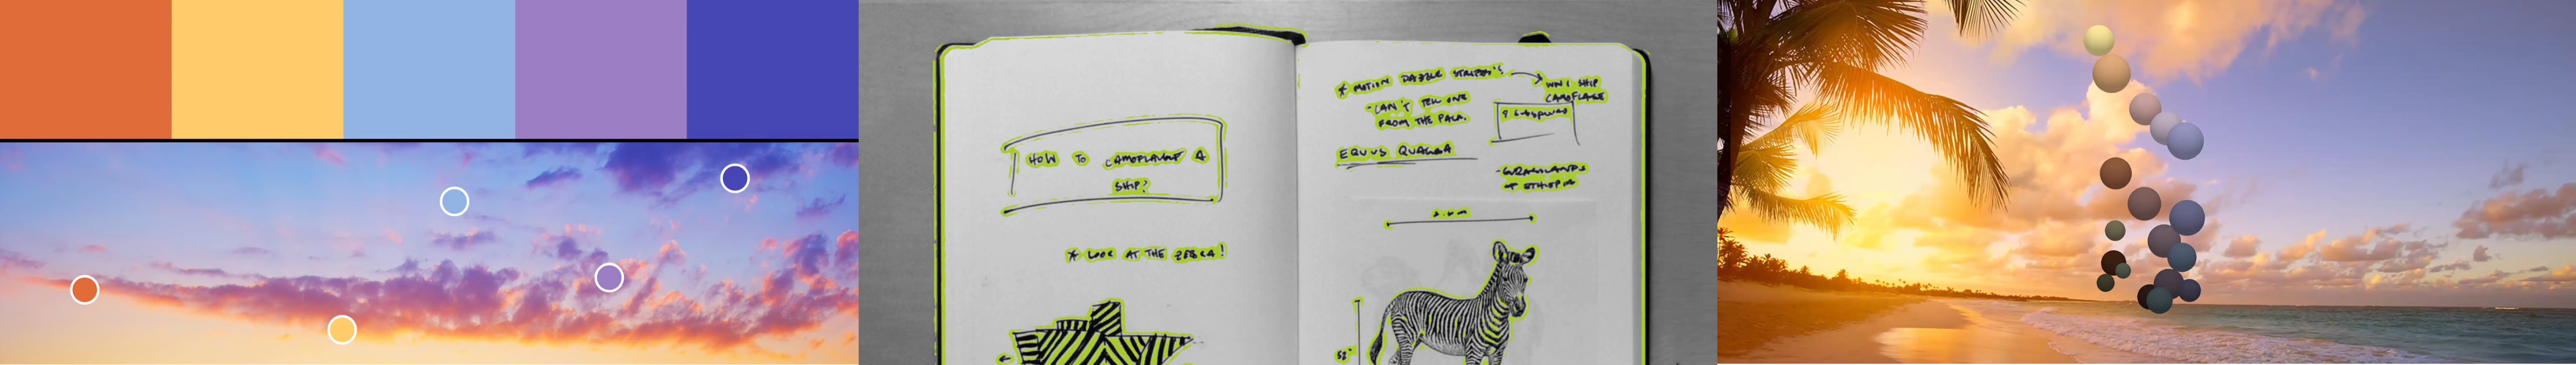 HOW TO CAMOFLAUGE A
SHIP?
* LOOK AT THE ZEBRA!
* MOTION DAZZLE STRIPES
WW1 SHIP
CAMOFLAGE
- CAN'T TELL ONE
FROM THE PACK.
EQUUS QUAGGA
- GRASSLANDS
OF ETHIOPIA